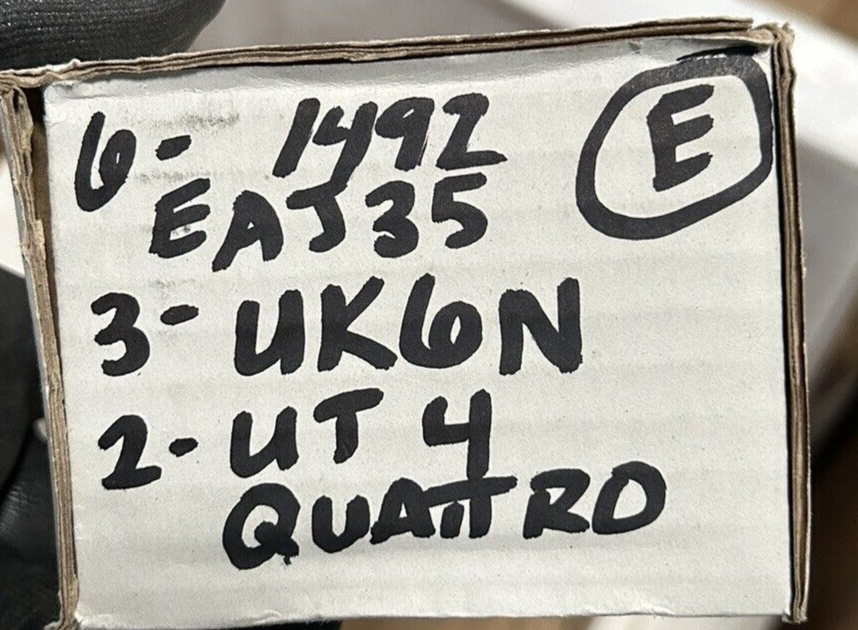 6- 1492 E
EAJ35
3- UK6N
2- UT 4
QUATTRO